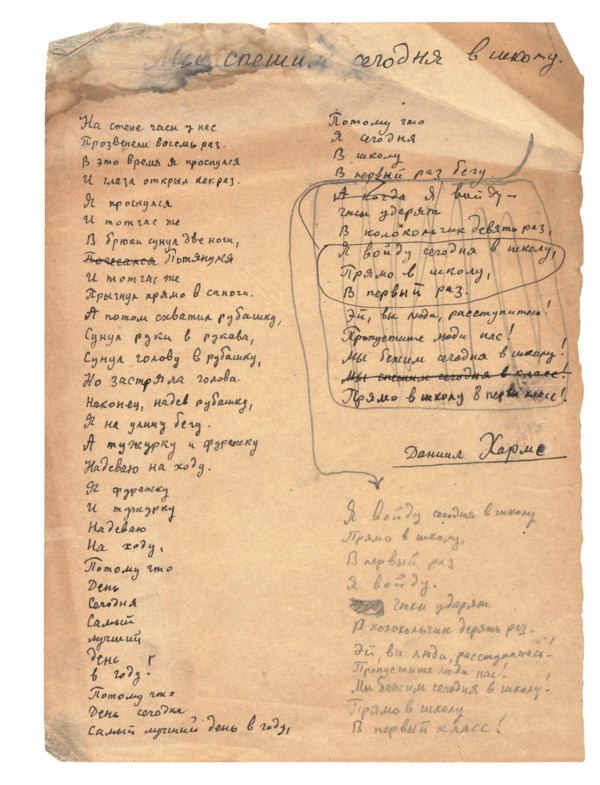 Мы спешим сегодня в школу.
На стене часы у нас
Прозвенели восемь раз.
В это время я проснулся
И глаза открыл как раз.
Я проснулся
И тотчас же
В брюки сунул две ноги,
Почесался Потянулся
И тотчас же
Прыгнул прямо в сапоги.
А потом схватил рубашку,
Сунул руки в рукава,
Сунул голову в рубашку,
Но застряла голова.
Наконец, надев рубашку,
Я на улицу бегу.
А тужурку и фуражку
Надеваю на ходу.
Я фуражку
И тужурку
Надеваю
На ходу,
Потому что
День
Сегодня
Самый
лучший
день
в году.
Потому что
День сегодня
Самый лучший день в году,
Потому что
Я сегодня
В школу
В первый раз бегу.
А когда я войду —
часы ударят
В колокольчик девять раз,
Я войду сегодня в школу,
Прямо в школу,
В первый раз.
Эй, вы люди, расступитесь!
Пропустите люди нас!
Мы бежим сегодня в школу!
Мы спешим сегодня в класс!
Прямо в школу в первый класс!
Даниил Хармс
Я войду сегодня в школу
Прямо в школу,
В первый раз
Я войду.
Часы ударят
В колокольчик девять раз.
Эй, вы люди, расступитесь!
Пропустите люди нас!
Мы бежим сегодня в школу.
Прямо в школу
В первый класс!